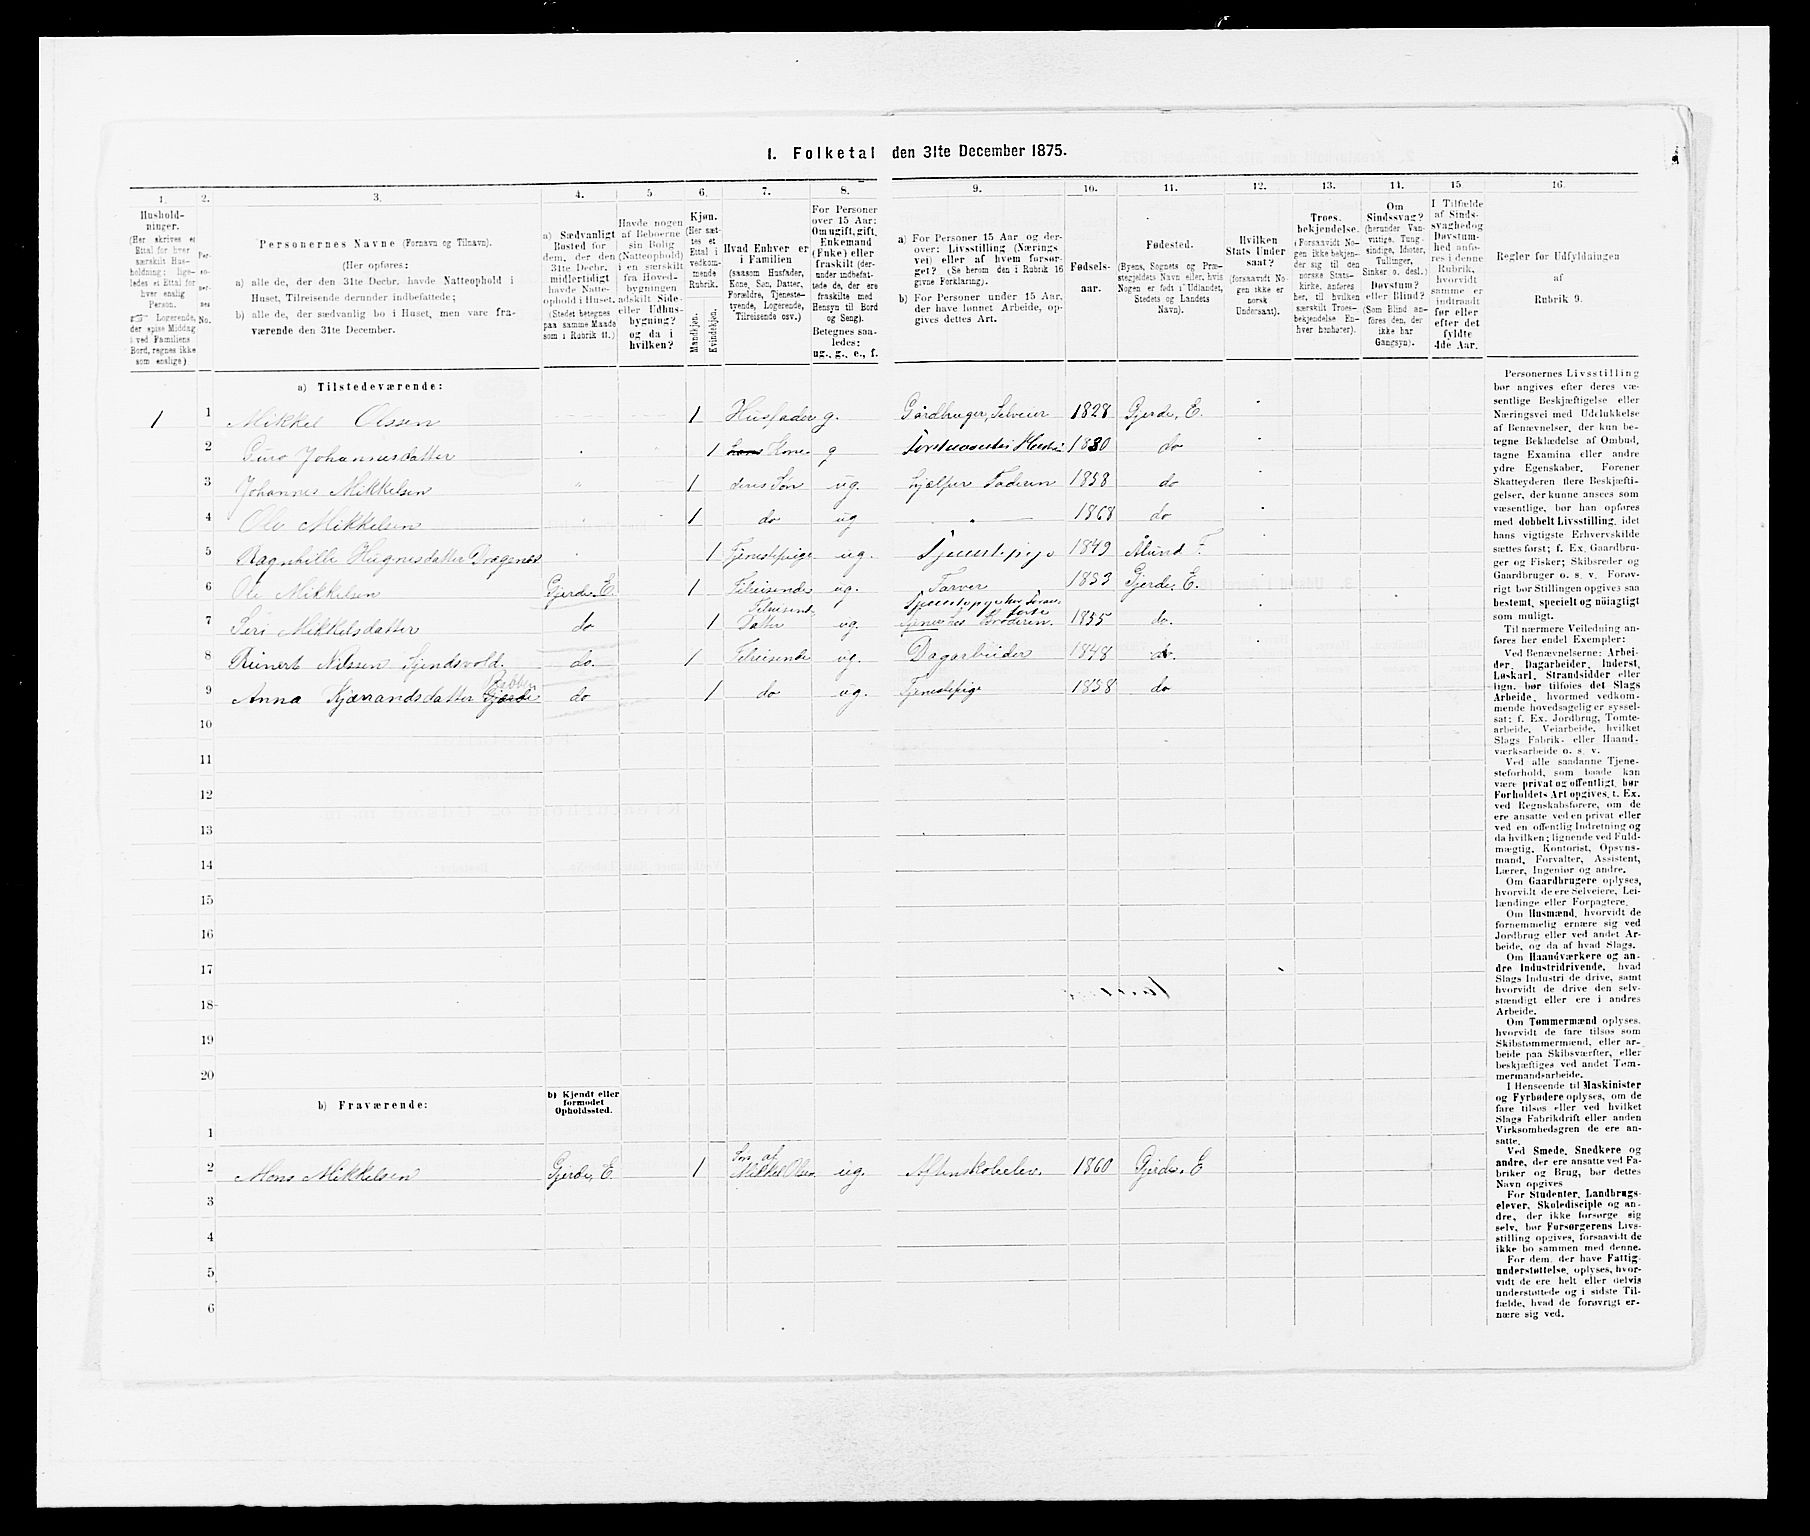 1. Folketal den 31te December 1875.
1. 2. 3. 4. 5. 6. 7. 8. 9. 10. 11. 12. 13. 14. 15. 16.
Hushold-
ninger.
(Her skrives et
Ettal for hver
særskilt Hus-
holdning; lige-
ledes et Ettal for
hver enslig
Person.
Logerende,
der spise Middag
i ved Familiens
Bord, regnes ikke
som enslige.)
Per-
so-
ner-
nes
No.
Personernes Navne (Fornavn og Tilnavn).
(Her opføres:
a) alle de, der den 31te Decbr. havde Natteophold i
Huset, Tilreisende derunder indbefattede;
b) alle de, der sædvanlig bo i Huset, men vare fra-
værende den 31te December.
a) Sædvanligt
Bosted for
dem, der den
31te Decbr.
midlertidigt
havde Natte-
ophold i Huset.
(Stedet betegnes
paa samme Maade
som i Rubrik 11.)
Havde nogen
af Beboerne
sin Bolig
(Natteophold)
i en særskilt
fra Hoved-
bygningen
adskilt Side-
eller Udhus-
bygning?
og da i
hvilken?
Kjøn.
(Her sæt-
tes et
Ettal i
vedkom-
mende
Rubrik.
Mandkjøn.
Kvindekjøn.
Hvad Enhver er
i Familien
(saasom Husfader,
Kone, Søn, Datter,
Forældre, Tjeneste-
tyende, Logerende,
Tilreisende osv.)
For Personer
over 15 Aar:
Om ugift, gift,
Enkemand
(Enke) eller
fraskilt (der-
under indbefat-
tede de, der ere
fraskilte med
Hensyn til Bord
og Seng).
Betegnes saa-
ledes:
ug., g., e., f.
a) For Personer 15 Aar og der-
over: Livsstilling (Nærings-
vei) eller af hvem forsør-
get? (Se herom den i Rubrik 16
givne Forklaring).
b) For Personer under 15 Aar,
der have lønnet Arbeide, op-
gives dettes Art.
Fødsels-
aar.
Fødested.
(Byens, Sognets og Præ-
stegjeldets Navn eller, hvis
Nogen er født i Udlandet,
Stedets og Landets
Navn).
Hvilken
Stats Under
saat?
(forsaavidt No-
gen ikke er
norsk
Undersaat).
Troes-
bekjendelse.
(Forsaavidt No-
gen ikke bekjen-
der sig til den
norske Stats-
kirke, anføres
her, til hvilken
særskilt Troes-
bekjendelse En-
hver henhører).
Om
Sindssvag?
(herunder Van-
vittige, Tung-
sindige, Idioter,
Tullinger,
Sinker o. desl.)
Døvstum?
eller Blind?
(Som Blind an-
føres den, der
ikke har
Gangsyn).
I Tilfælde
af Sinds-
svaghed og
Døvstum-
hed anfø-
res i denne
Rubrik,
hvorvidt
samme er
indtraadt
før eller
efter det
fyldte
4de Aar.
Regler for Udfyldningen
af
Rubrik 9.
a) Tilstedeværende:
1 1 Mikkel Olssen 1 Husfader g. Gårdbruger, Selveier 1828 Gjerde, E.
2 Guro Johannesdatter 1 Kone g 1830 do
3 Johannes Mikkelsen 1 deres Søn ug. hjælper Faderen 1858 do
4 Ole Mikkelsen 1 do ug 1868 do
5 Ragnhilde Hugnesdatter Dragenes 1 Tjenestepige ug. Tjenestepige 1849 Ålund F.
6 Ole Mikkelsen Gjerde, E. 1 Tilreisende ug. Farver 1853 Gjerde, E.
7 Siri Mikkelsdatter do 1 Tilreisende Datter ug. Broderen 1855 do.
8 Reinert Nilssen do. 1 Tilreisende ug. Dagarbeider 1848 do.
9 Anna Kjærrandsdatter Gjerde do 1 do ug. Tjenestepige 1858 do
10
11
12
13
14
15
16
17
18
19
20
b) Fraværende:
b) Kjendt eller
formodet
Opholdssted.
1
2 Mons Mikkelsen Gjerde, E. 1 Søn af Mikkel Olsen ug. Aftenskoleelev. 1860 Gjerde, E
3
4
5
6
Personernes Livsstilling
bør angives efter deres væ-
sentlige Beskjæftigelse eller
Næringsvei med Udelukkelse
af Benævnelser, der kun be-
tegne Beklædelse af Ombud,
tagne Examina eller andre
ydre Egenskaber. Forener
Skatteyderen flere Beskjæfti-
gelser, der kunne ansees som
væsentlige, bør han opføres
med dobbelt Livsstilling, idet
hans vigtigste Erhvervskilde
sættes først; f. Ex. Gaardbru-
ger og Fisker; Skibsreder og
Gaardbruger o. s. v. Forøv-
rigt bør Stillingen opgives saa
bestemt, specielt og nöiagtigt
som muligt.
Til nærmere Veiledning an-
føres her endel Exempler:
Ved Benævnelserne: Arbei-
der, Dagarbeider, Inderst,
Løskarl, Strandsidder eller
lign. bør tilføies det Slags
Arbeide, hvormed vedkom-
mende hovedsagelig er syssel-
sat; f. Ex. Jordbrug, Tomte-
arbeide, Veiarbeide, hvilket
Slags Fabrik- eller Haand-
værksarbeide o. s. v.
Ved alle saadanne Tjene-
steforhold, som baade kan
være privat og offentligt, bør
Forholdets Art opgives, t. Ex.
ved Regnskabsførere, om de
ere ansatte ved en privat eller
ved en offentlig Indretning og
da hvilken; lignende ved Fuld-
mægtig, Kontorist, Opsyns-
mand, Forvalter, Assistent,
Lærer, Ingeniør og andre.
Om Gaardbrugere oplyses,
hvorvidt de ere Selveiere, Lei-
lændinge eller Forpagtere.
Om Husmænd, hvorvidt de
fornemmelig ernære sig ved
Jordbrug eller ved andet Ar-
beide, og da af hvad Slags.
Om Haandværkere og an-
dre Industridrivende, hvad
Slags Industri de drive, samt
hvorvidt de drive den selv-
stændigt eller ere i andres
Arbeide.
Om Tømmermænd oplyses,
hvorvidt de fare tilsøs som
Skibstømmermænd, eller ar-
beide paa Skibsværfter, eller
beskjæftiges ved andet Tøm-
mermandsarbeide.
I Henseende til Maskinister
og Fyrbødere oplyses, om de
fare tilsøs eller ved hvilket
Slags Fabrikdrift eller anden
Virksomhedsgren de ere an-
satte.
Ved Smede, Snedkere og
andre, der ere ansatte ved Fa-
briker og Brug, bør dettes
Navn opgives
For Studenter, Landbrugs-
elever, Skoledisciple og an-
dre, der ikke forsørge sig
selv, bør Forsørgerens Livs-
stilling opgives, forsaavidt de
ikke bo sammen med denne.
For dem, der have Fattig-
understøttelse, oplyses, hvor-
vidt de ere helt eller delvis
understøttede og i sidste Til-
fælde, hvad de forøvrigt er-
nære sig ved.